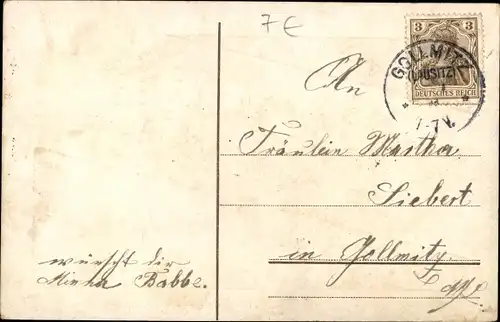 7 €
3 3
DEUTSCHES REICH
GOLLMITZ
(LAUSITZ)
7-7V.
An
Fräulein Martha
Siebert
in Gollmitz.
wünscht dir
Minna Babbe.